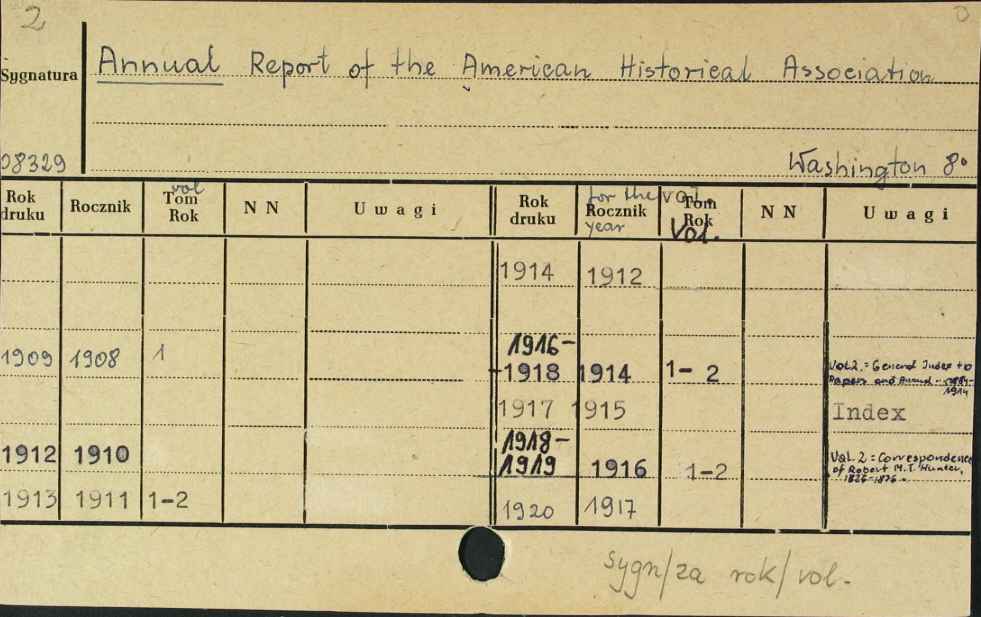 2
Annual Report of the American Historical Association
Sygnatura
08329
Washington 8°
vol
for the vol.
Rok druku Rocznik Tom Rok NN Uwagi Rok druku Rocznik Tom Rok NN Uwagi
year Vol.
1914 1912
1909 1908 1
1916-
1918 1914 1-2
Vol.2.= General Index to
Papers and Annual - 1884-
1914
1917 1915 Index
1912 1910
1918-
1919 1916 1-2
Vol.2 = Correspondence
of Robert M.T. Hunter,
1826-1876.
1913 1911 1-2
1920 1917
sygn/za rok/vol.